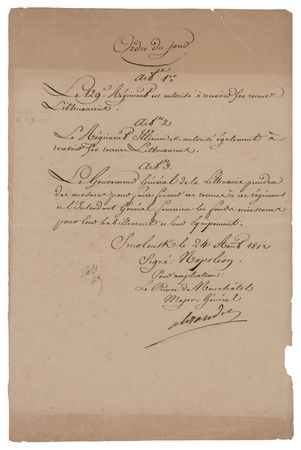 Ordre du jour
Art. 1er
Le 129e Régiment est autorisé à recevoir
Lithuaniens.
Art. 2
Le Régiment Illirien est autorisé également à
recevoir Lithuaniens.
Art. 3.
Le Gouverneur Général de la Lithuanie prendra
des mesures pour faire fournir ces à ces régimens
et l'Intendant Général fournira les fonds nécessaires
pour leur habillement et leur équipement.
Smolensk le 24 Août 1812
Signé: Napoléon
Pour ampliation
Le Prince de Neuchâtel
Major-Général
alexandre